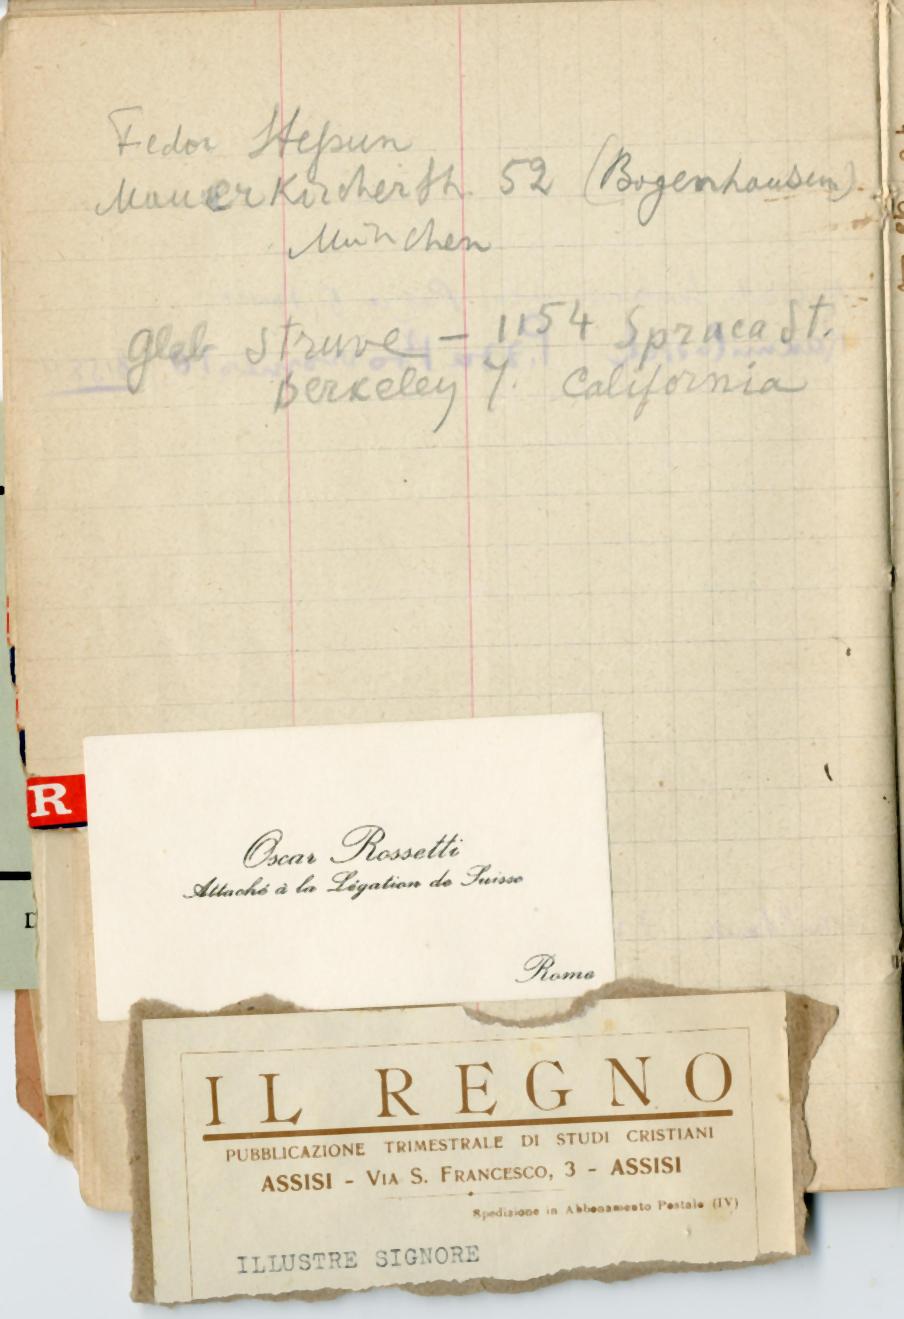 Fedor Stepun
Mauerkircherstr. 52 (Bogenhausen)
München
Gleb Struve – 1154 Spruce St.
Berkeley 7. California
R
Oscar Rossetti
Attaché à la Légation de Suisse
Rome
IL REGNO
PUBBLICAZIONE TRIMESTRALE DI STUDI CRISTIANI
ASSISI – VIA S. FRANCESCO, 3 – ASSISI
Spedizione in Abbonamento Postale (IV)
ILLUSTRE SIGNORE